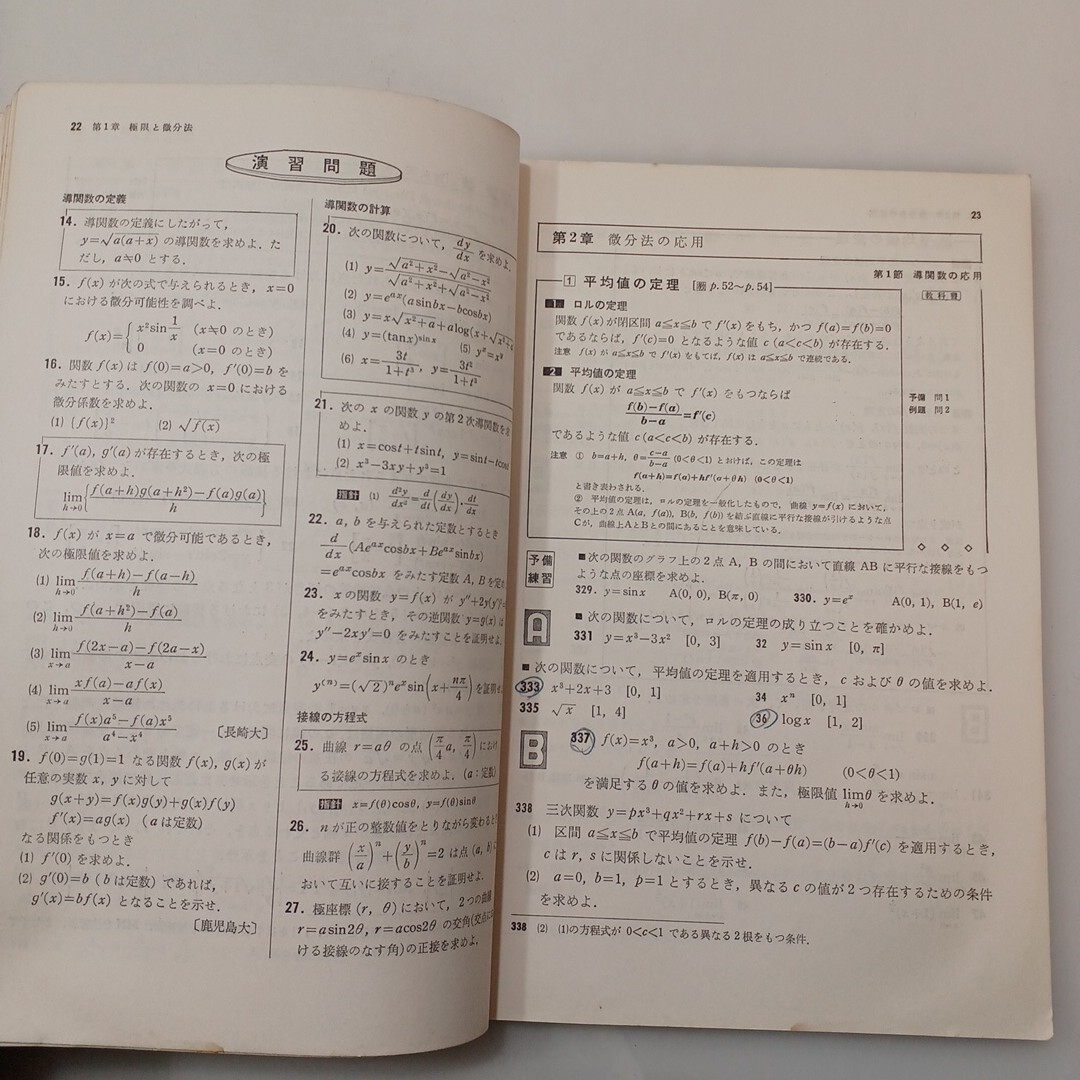 22 第1章 極限と微分法
演習問題
導関数の定義
14. 導関数の定義にしたがって,
y=√a(a+x) の導関数を求めよ. た
だし, a≒0 とする.
15. f(x) が次の式で与えられるとき, x=0
における微分可能性を調べよ.
f(x)={ x²sin 1/x (x≒0 のとき)
0 (x=0 のとき)
16. 関数 f(x) は f(0)=a>0, f′(0)=b を
みたすとする. 次の関数の x=0 における
微分係数を求めよ.
(1) {f(x)}² (2) √f(x)
17. f′(a), g′(a) が存在するとき, 次の極
限値を求めよ.
lim h→0 {f(a+h)g(a+h²)−f(a)g(a)/h}
18. f(x) が x=a で微分可能であるとき,
次の極限値を求めよ.
(1) lim h→0 f(a+h)−f(a−h)/h
(2) lim h→0 f(a+h²)−f(a)/h
(3) lim x→a f(2x−a)−f(2a−x)/x−a
(4) lim x→a xf(a)−af(x)/x−a
(5) lim x→a f(x)a⁵−f(a)x⁵/a⁴−x⁴ 〔長崎大〕
19. f(0)=g(1)=1 なる関数 f(x), g(x) が
任意の実数 x, y に対して
g(x+y)=f(x)g(y)+g(x)f(y)
f′(x)=ag(x) (a は定数)
なる関係をもつとき
(1) f′(0) を求めよ.
(2) g′(0)=b (b は定数) であれば,
g′(x)=bf(x) となることを示せ.
〔鹿児島大〕
導関数の計算
20. 次の関数について, dy/dx を求めよ.
(1) y=√a²+x²−√a²−x²/√a²+x²+√a²−x²
(2) y=eᵃˣ(asinbx−bcosbx)
(3) y=x√x²+a+alog(x+√x²+
(4) y=(tanx)ˢⁱⁿˣ (5) yˣ=xʸ
(6) x=3t/1+t³, y=3t²/1+t³
21. 次の x の関数 y の第2次導関数を
めよ.
(1) x=cost+tsint, y=sint−tcost
(2) x³−3xy+y³=1
指針 (1) d²y/dx²=d/dt(dy/dx)·dt/dx
22. a, b を与えられた定数とするとき
d/dx(Aeᵃˣcosbx+Beᵃˣsinbx)
=eᵃˣcosbx をみたす定数 A, B を
23. x の関数 y=f(x) が y″+2y(y′)
をみたすとき, その逆関数 y=g(x) は
y″−2xy′=0 をみたすことを証明せよ
24. y=eˣsinx のとき
y⁽ⁿ⁾=(√2)ⁿeˣsin(x+nπ/4) を証明せ
接線の方程式
25. 曲線 r=aθ の点 (π/4 a, π/4) におけ
る接線の方程式を求めよ. (a: 定数)
指針 x=f(θ)cosθ, y=f(θ)sinθ
26. n が正の整数値をとりながら変わると
曲線群 (x/a)ⁿ+(y/b)ⁿ=2 は点 (a, b)
おいて互いに接することを証明せよ.
27. 極座標 (r, θ) において, 2つの曲線
r=asin2θ, r=acos2θ の交角(交点に
ける接線のなす角)の正接を求めよ.
23
第2章 微分法の応用
第1節 導関数の応用
1 平均値の定理 [p.52〜p.54]
教科書
1 ロルの定理
関数 f(x) が閉区間 a≦x≦b で f′(x) をもち, かつ f(a)=f(b)=0
であるならば, f′(c)=0 となるような値 c (a<c<b) が存在する.
注意 f(x) が a≦x≦b で f′(x) をもてば, f(x) は a≦x≦b で連続である.
2 平均値の定理
関数 f(x) が a≦x≦b で f′(x) をもつならば
f(b)−f(a)/b−a=f′(c)
であるような値 c (a<c<b) が存在する.
予備 問1
例題 問2
注意 ① b=a+h, θ=c−a/b−a (0<θ<1) とおけば, この定理は
f(a+h)=f(a)+hf′(a+θh) (0<θ<1)
と書き表わされる.
② 平均値の定理は, ロルの定理を一般化したもので, 曲線 y=f(x) において,
その上の2点 A(a, f(a)), B(b, f(b)) を結ぶ直線に平行な接線が引けるような点
Cが, 曲線上AとBとの間にあることを意味している.
予備練習
■次の関数のグラフ上の2点 A, B の間において直線 AB に平行な接線をもつ
ような点の座標を求めよ.
329. y=sinx A(0, 0), B(π, 0) 330. y=eˣ A(0, 1), B(1, e)
A
■次の関数について, ロルの定理の成り立つことを確かめよ.
331 y=x³−3x² [0, 3] 32 y=sinx [0, π]
■次の関数について, 平均値の定理を適用するとき, c および θ の値を求めよ.
333 x³+2x+3 [0, 1] 34 xⁿ [0, 1]
335 √x [1, 4] 36 logx [1, 2]
B
337 f(x)=x³, a>0, a+h>0 のとき
f(a+h)=f(a)+hf′(a+θh) (0<θ<1)
を満足する θ の値を求めよ. また, 極限値 lim h→0 θ を求めよ.
338 三次関数 y=px³+qx²+rx+s について
(1) 区間 a≦x≦b で平均値の定理 f(b)−f(a)=(b−a)f′(c) を適用するとき,
c は r, s に関係しないことを示せ.
(2) a=0, b=1, p=1 とするとき, 異なる c の値が2つ存在するための条件
を求めよ.
338 (2) (1)の方程式が 0<c<1 である異なる2根をもつ条件.